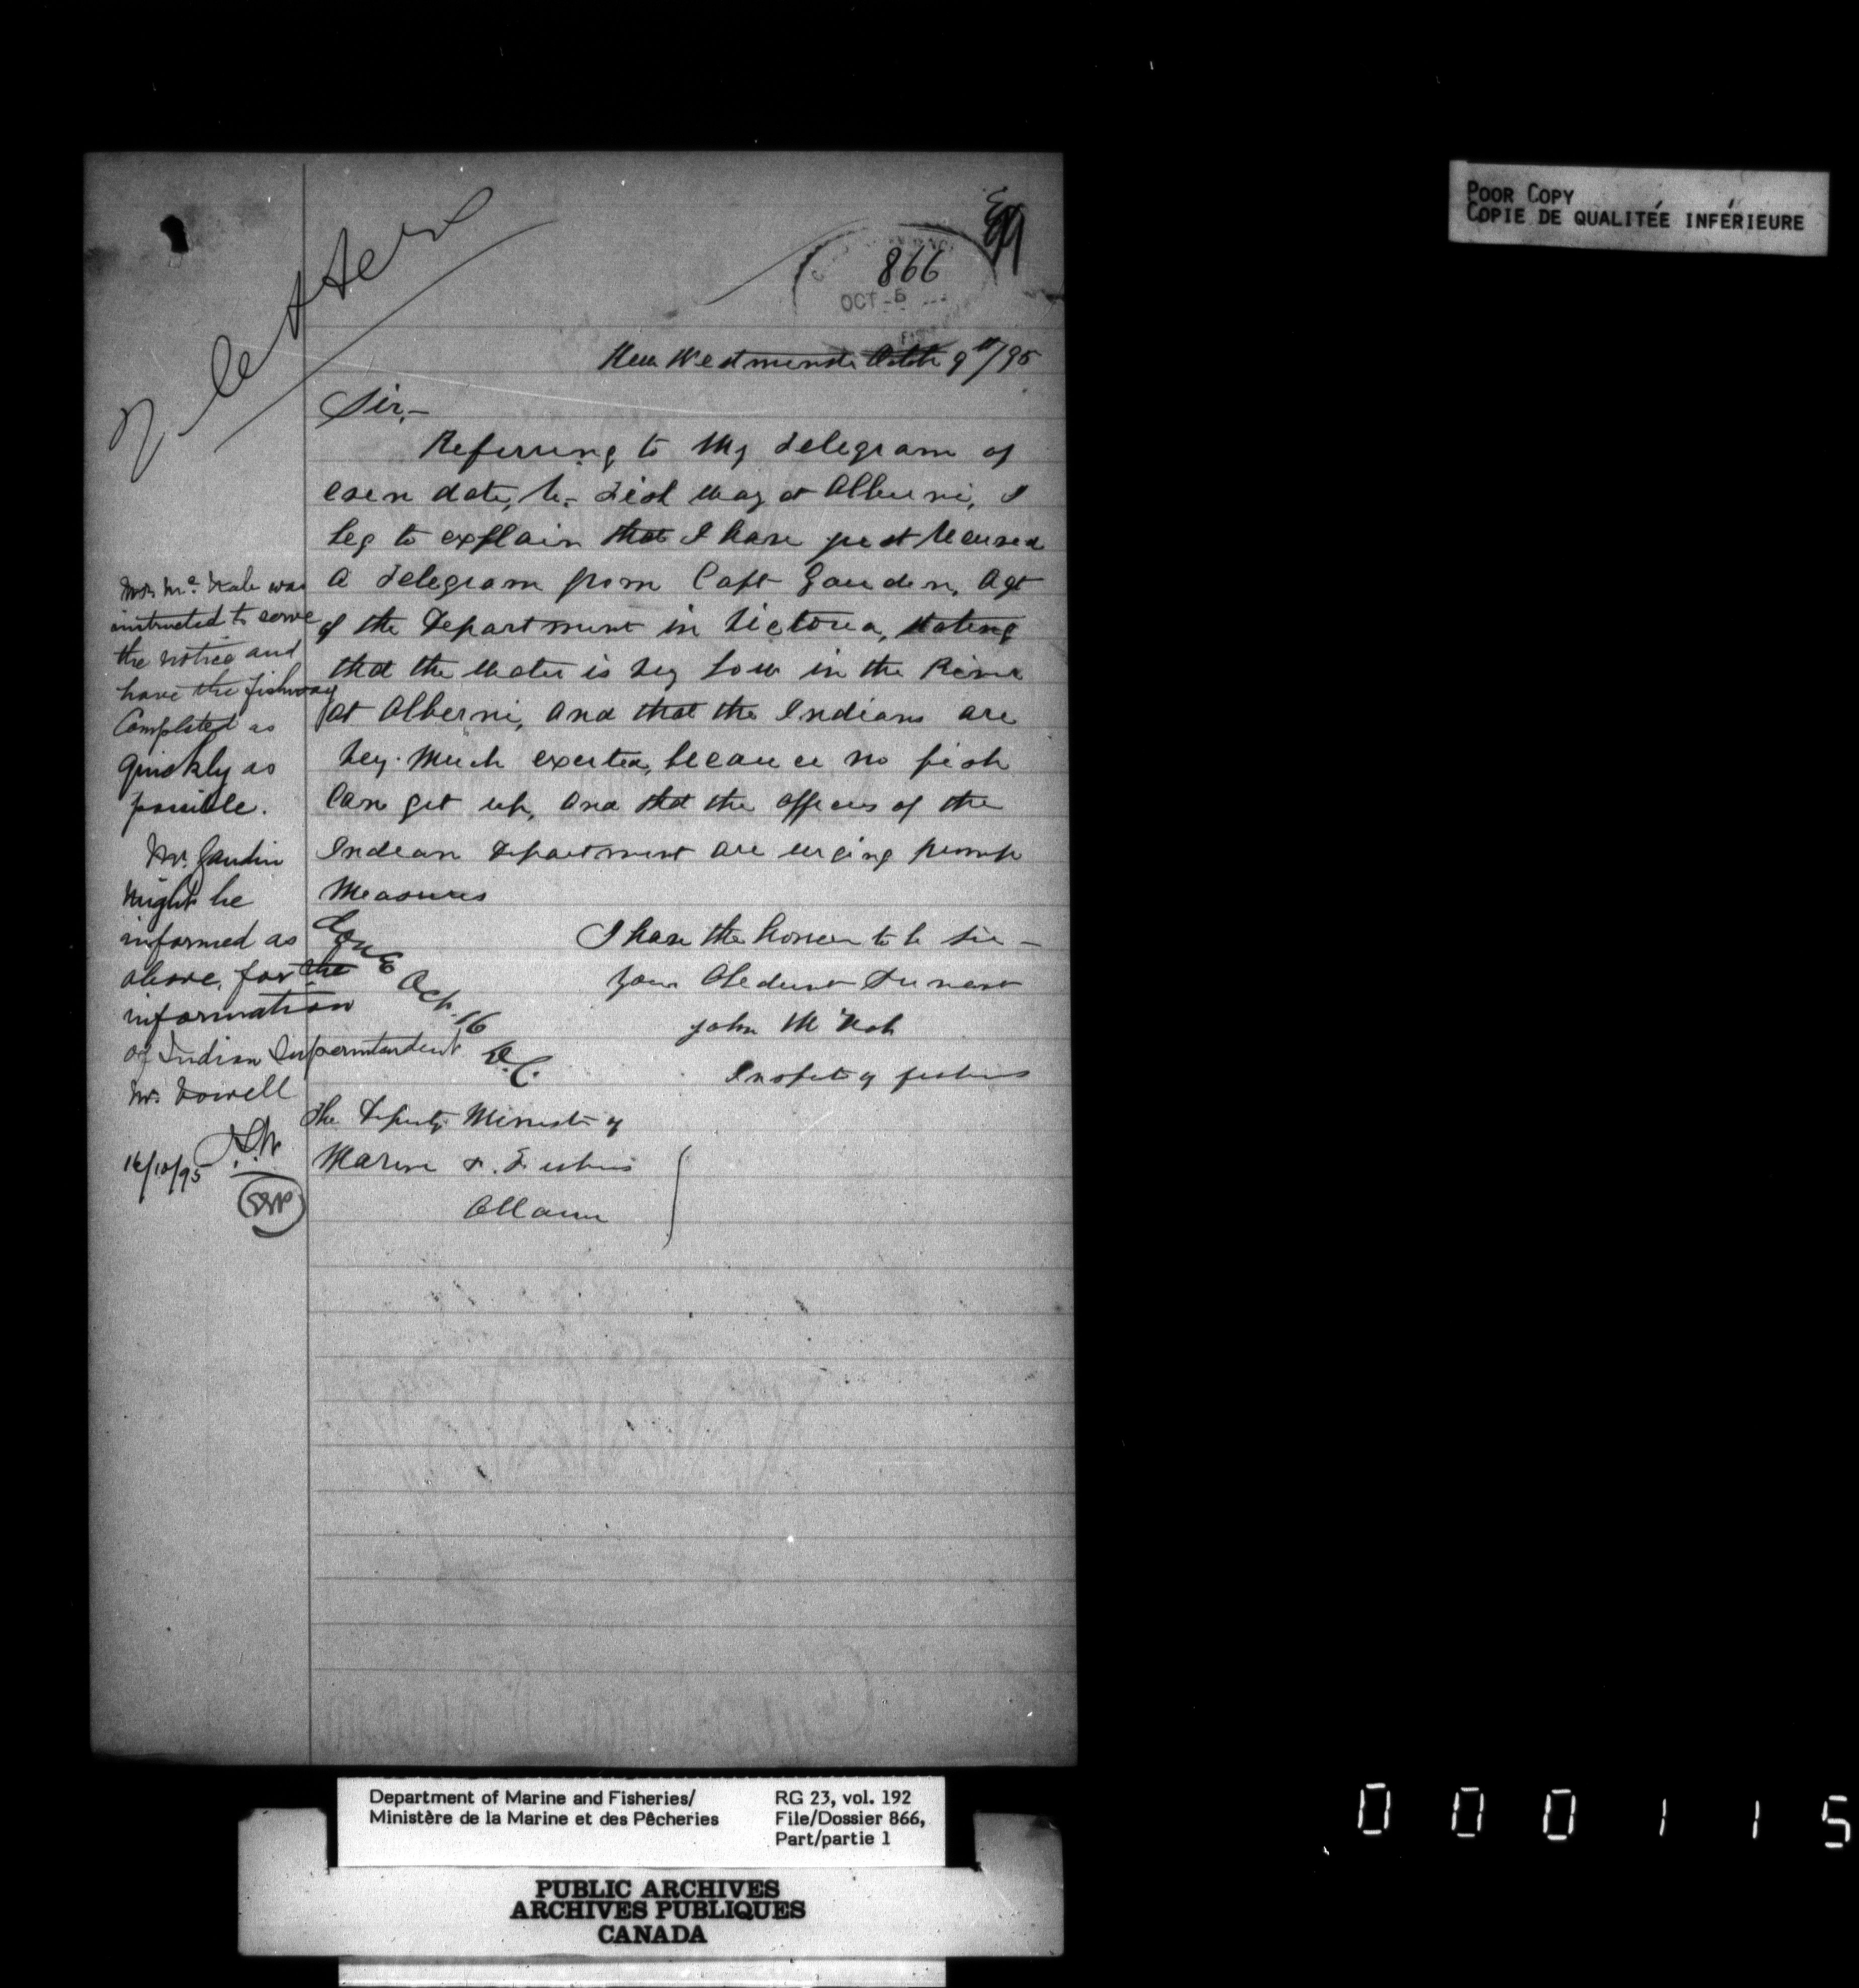 POOR COPY
COPIE DE QUALITÉE INFÉRIEURE
2 letters
99
866
OCT
New Westminster October 9th/95
Sir,–
Referring to my telegram of
even date, re- Fish way at Alberni, I
beg to explain that I have just received
a telegram from Capt Gauden, Agt
of the Department in Victoria, stating
that the water is very low in the River
at Alberni, and that the Indians are
very much excited, because no fish
can get up, and that the officers of the
Indian Department are urging prompt
measures
I have the honour to be Sir –
Your Obedient Servant
John McNab
Inspector of fisheries
The Deputy Minister of
Marine & Fisheries
Ottawa
Mr. McNab was
instructed to serve
the notice and
have the fishway
Completed as
quickly as
possible.
Mr. Gaudin
might be
informed as
above, for the
information
of Indian Superintendent
Mr. Vowell
16/10/95
Done
Oct. 16
Department of Marine and Fisheries/
Ministère de la Marine et des Pêcheries
RG 23, vol. 192
File/Dossier 866,
Part/partie 1
PUBLIC ARCHIVES
ARCHIVES PUBLIQUES
CANADA
000115